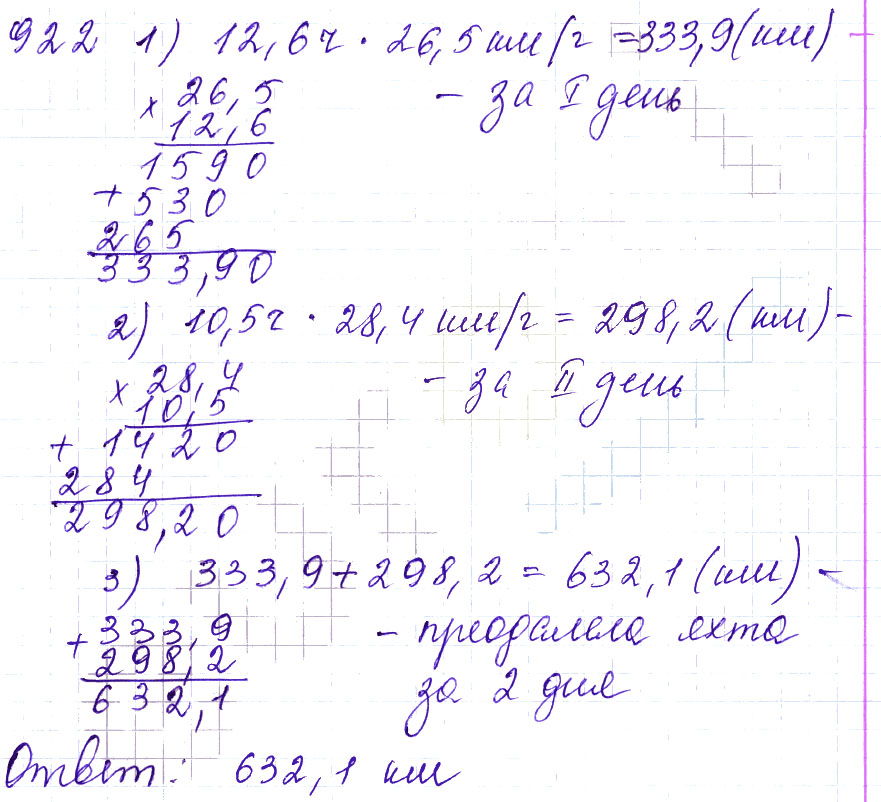 922 1) 12,6ч · 26,5 км/г = 333,9 (км) -
× 26,5 - за I день
12,6
1590
+ 530
265
333,90
2) 10,5г · 28,4 км/г = 298,2 (км) -
× 28,4 - за II день
10,5
+ 1420
284
298,20
3) 333,9 + 298,2 = 632,1 (км) -
+ 333,9 - преодалела яхта
298,2 за 2 дня
632,1
Ответ: 632,1 км